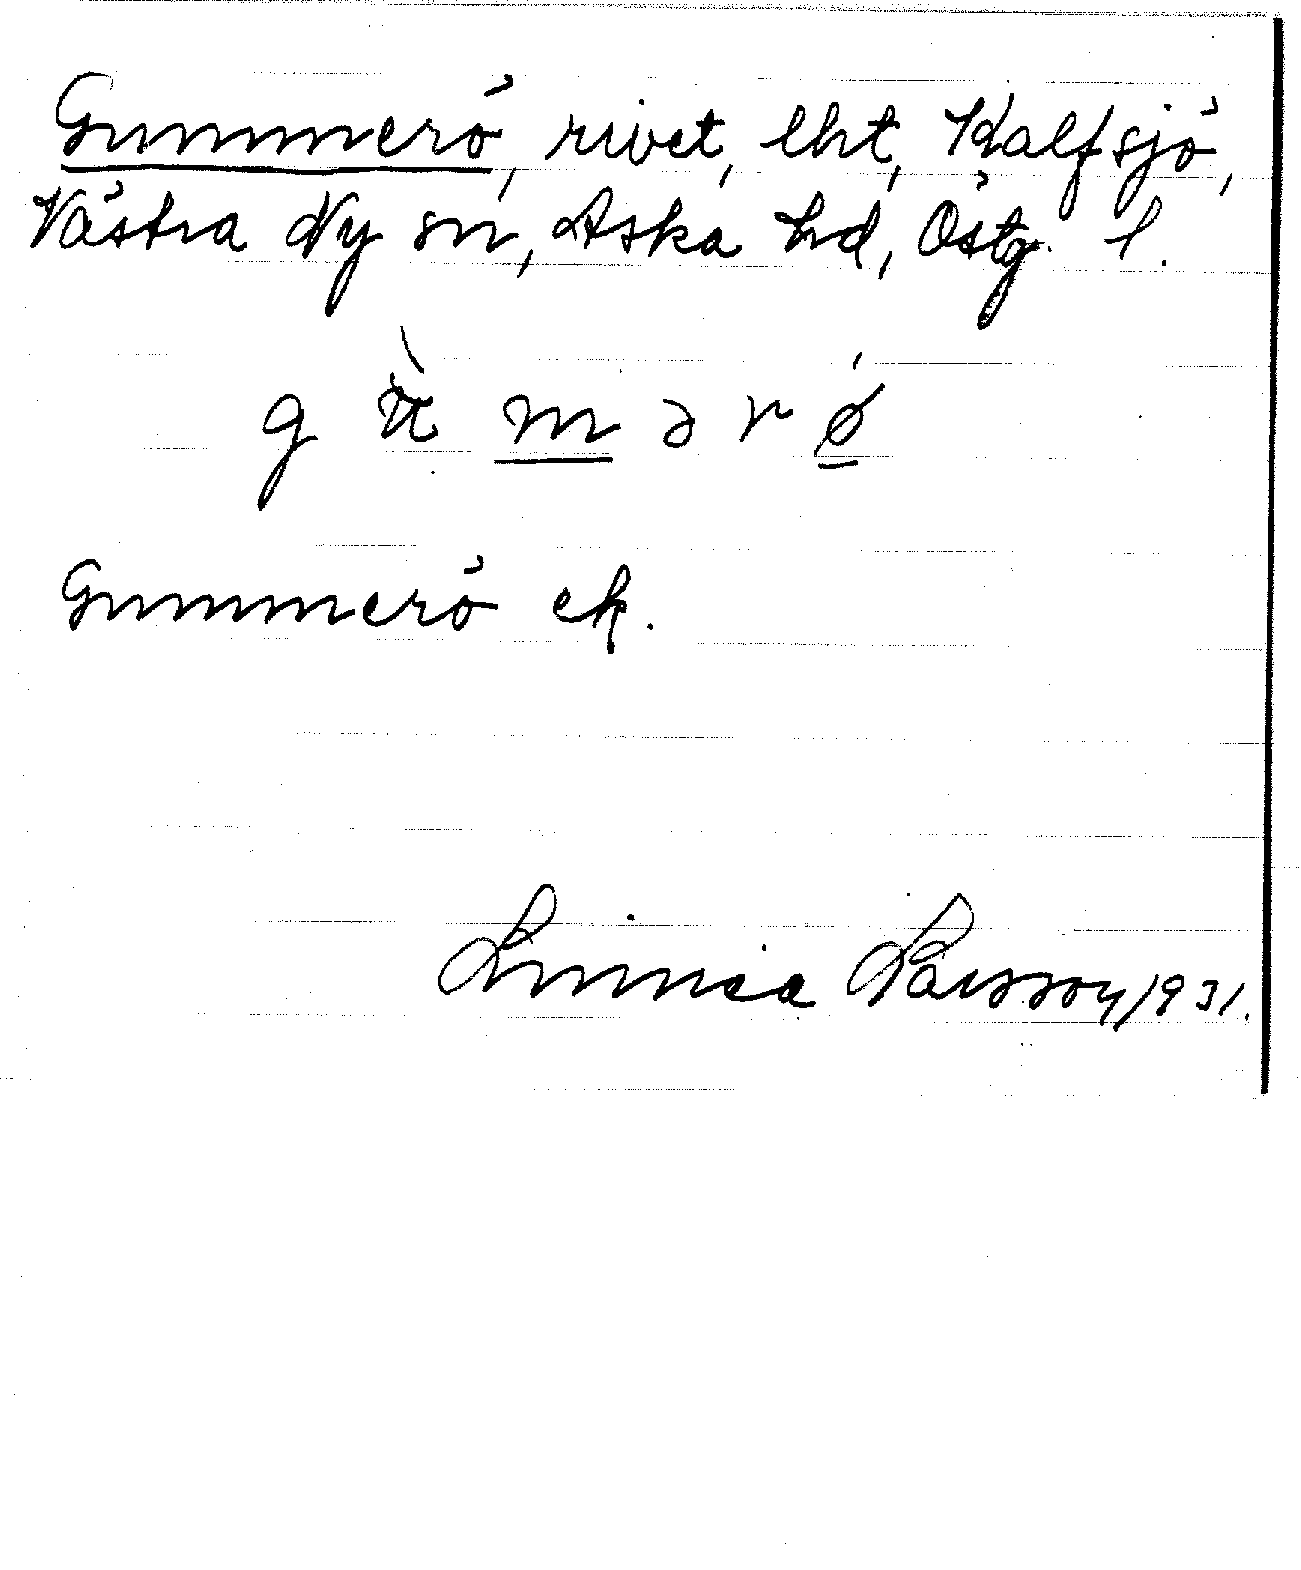 Gummerö, rivet, lht, Kalfsjö,
Västra Ny sn, Aska hd, Östg. l.
g ù m ə r ø
Gummerö ek.
Linnea Larsson 1931.